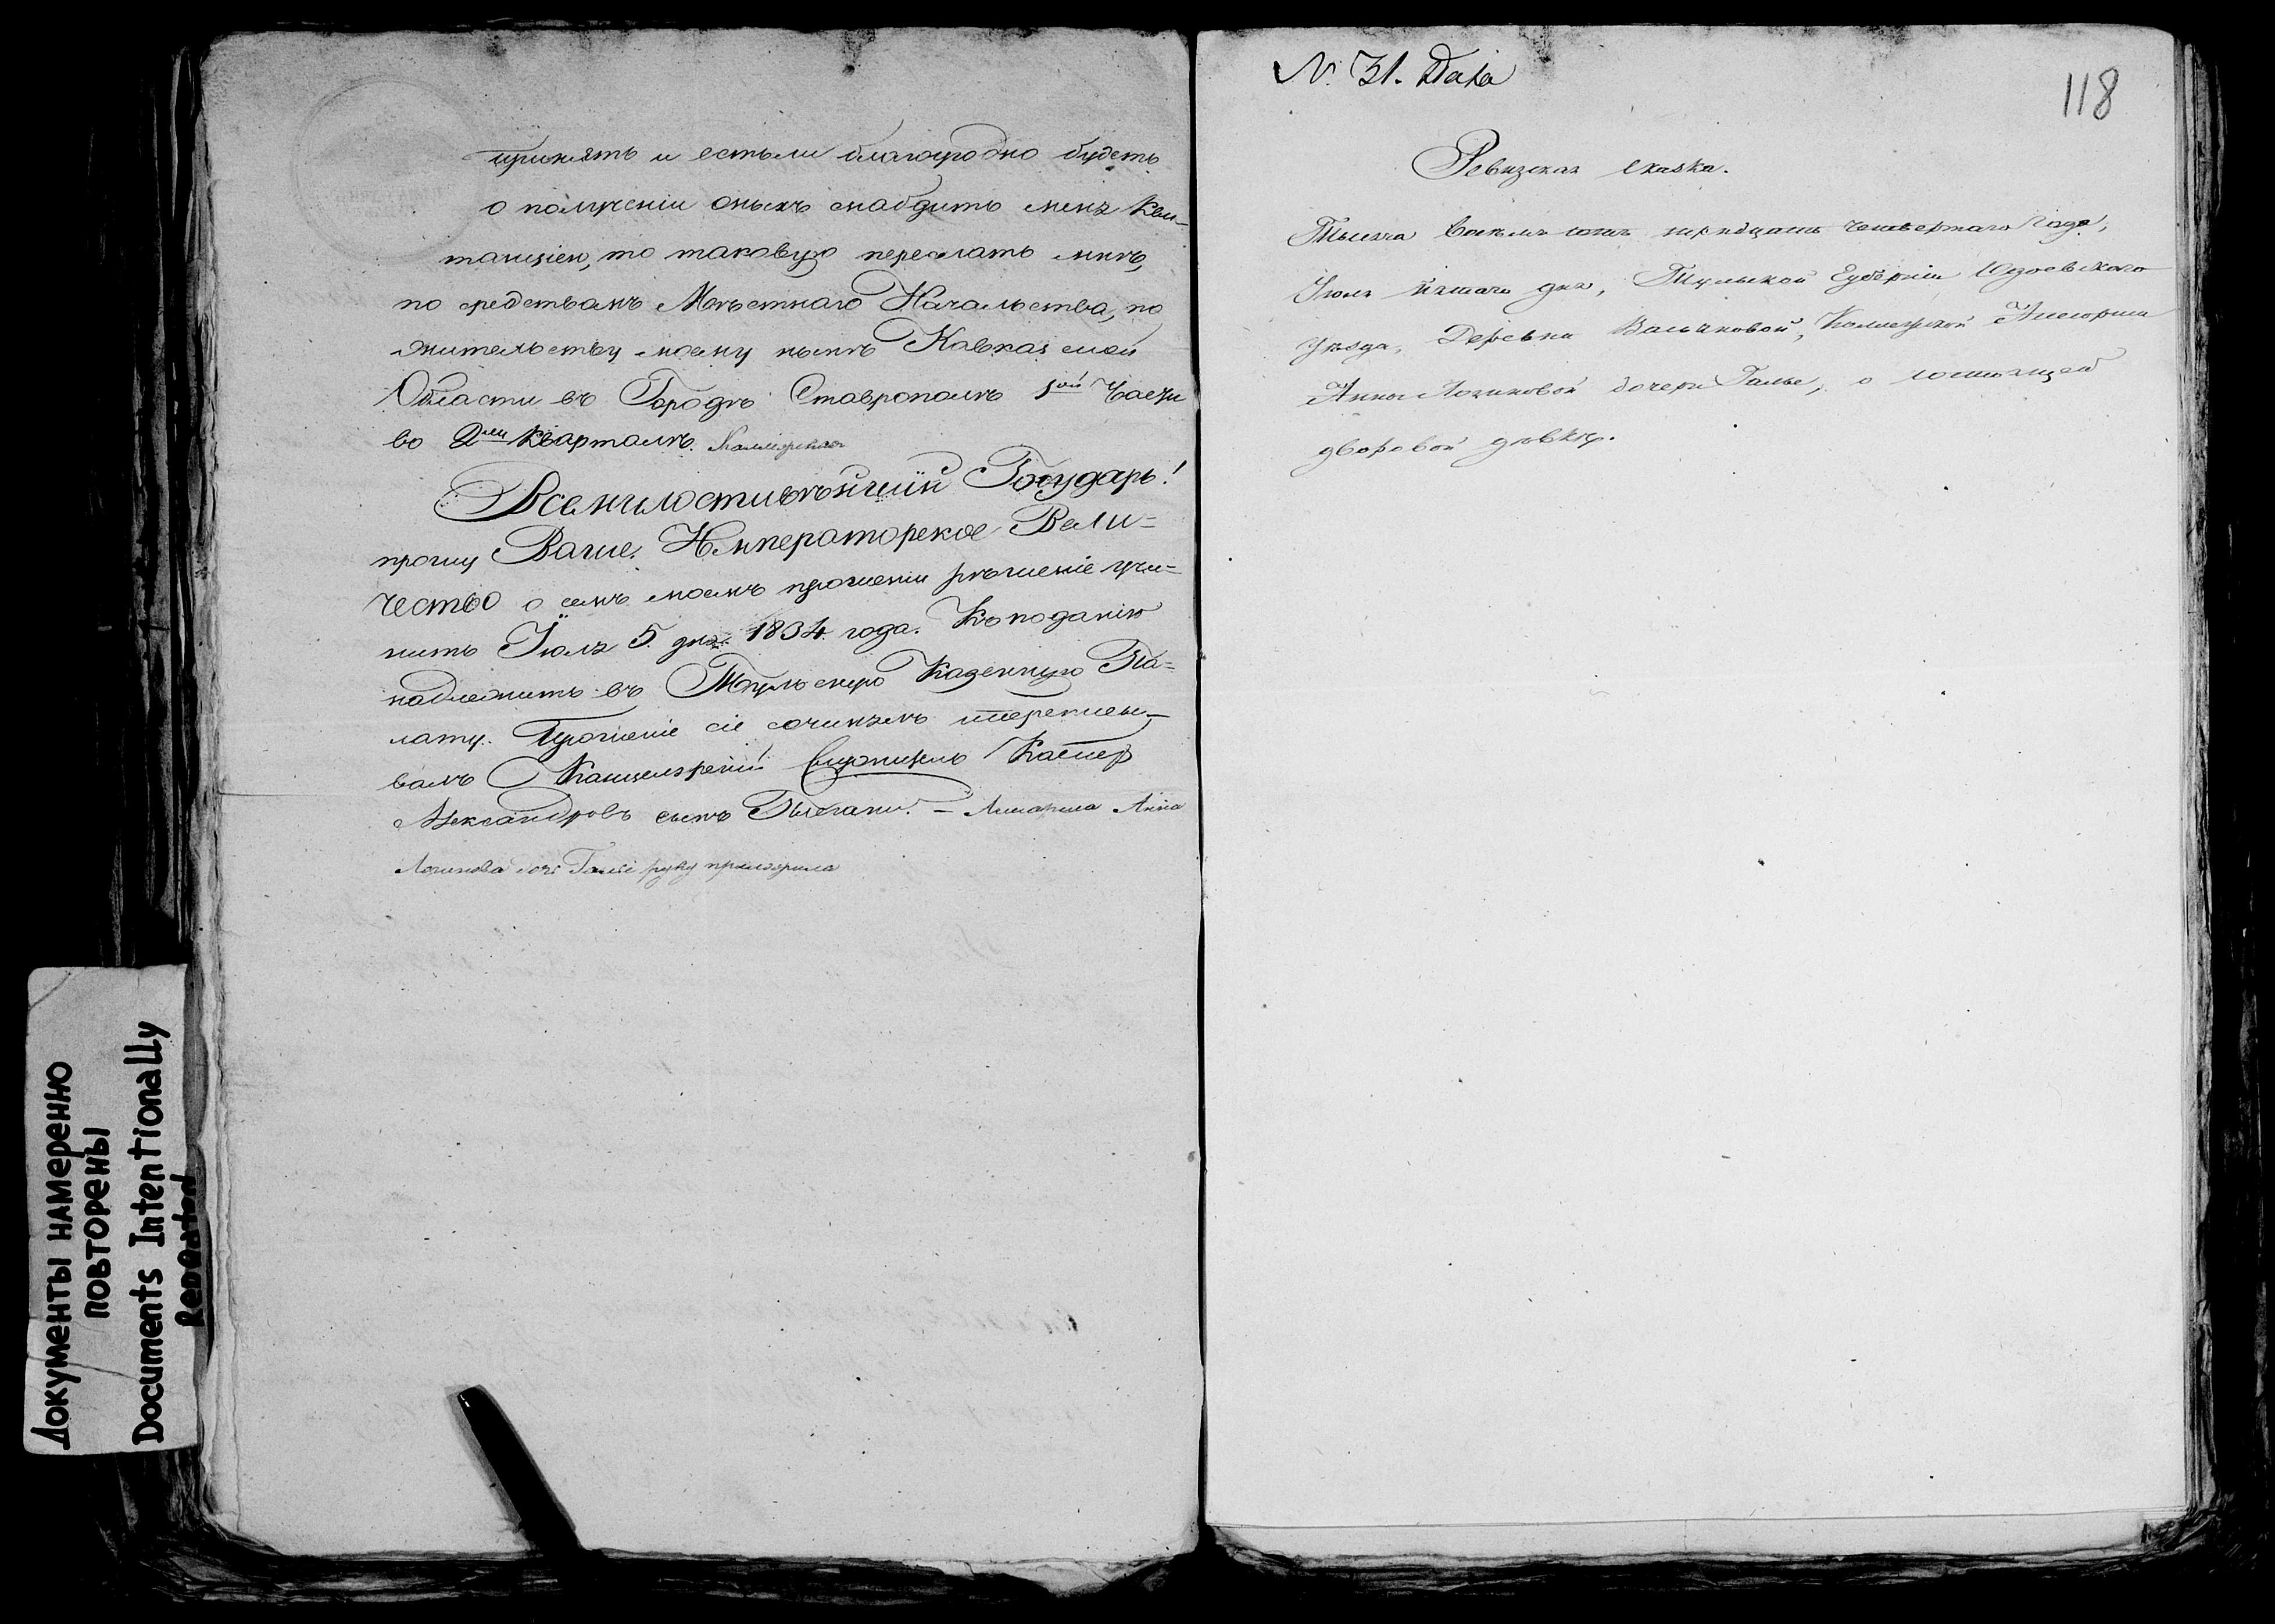 принять и естьли благоугодно будетъ
о полученіи оныхъ снабдить меня Кви-
танціею, то таковую переслать мнѣ,
по средствамъ Мѣстнаго Начальства, по
жительству моему нынѣ Кавказской
Области въ Городѣ Ставрополѣ 1ой Части
во 2мъ Кварталѣ.
Всемилостивѣйшій Государь!
прошу Ваше Императорское Вели=
чество о семъ моемъ прошеніи рѣшеніе учи=
нить Іюля 5 дня 1834 года. Къ поданію
надлежитъ въ Тульскую Казенную Па=
лату. Прошеніе сіе сочинялъ и переписы-
валъ Канцелярскій Служитель
Александровъ сынъ
Анна
Логинова дочь руку приложила
N. 31. Data
118
Ревизская сказка.
Тысяча восемь сотъ тридцать четвертаго года,
Іюля пятаго дня, Тульской Губерніи Одоевскаго
уѣзда, Деревни Колежской Асесорши
Анны Логиновой дочери Галье, о состоящей
дворовой дѣвкѣ.
Документы намеренно
повторены
Documents Intentionally
Repeated